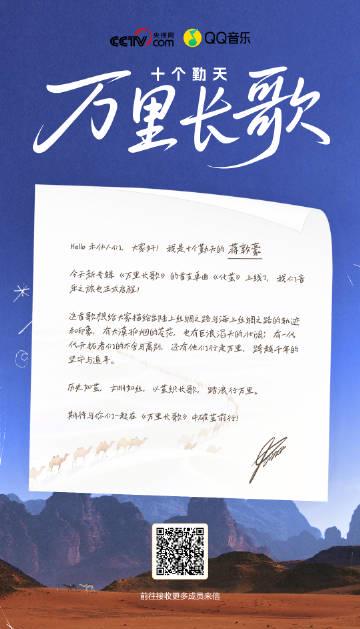 CCTV 央视网 .com QQ音乐
十个勤天
万里长歌
Hello 禾伙人们，大家好！我是十个勤天的 蒋敦豪
今天新专辑《万里长歌》的首支单曲《化茧》上线了，我们音
乐之旅也正式启程！
这首歌想给大家描绘出陆上丝绸之路与海上丝绸之路的轨迹
和印象，有大漠孤烟的苍茫，也有巨浪滔天的壮阔；有一代
代开拓者们的不舍与离别，还有他们行走万里，跨越千年的
坚守与追寻。
历史如茧，大地如丝，以茧织长歌，踏浪行万里。
期待与你们一起在《万里长歌》中破茧前行！
前往接收更多成员来信